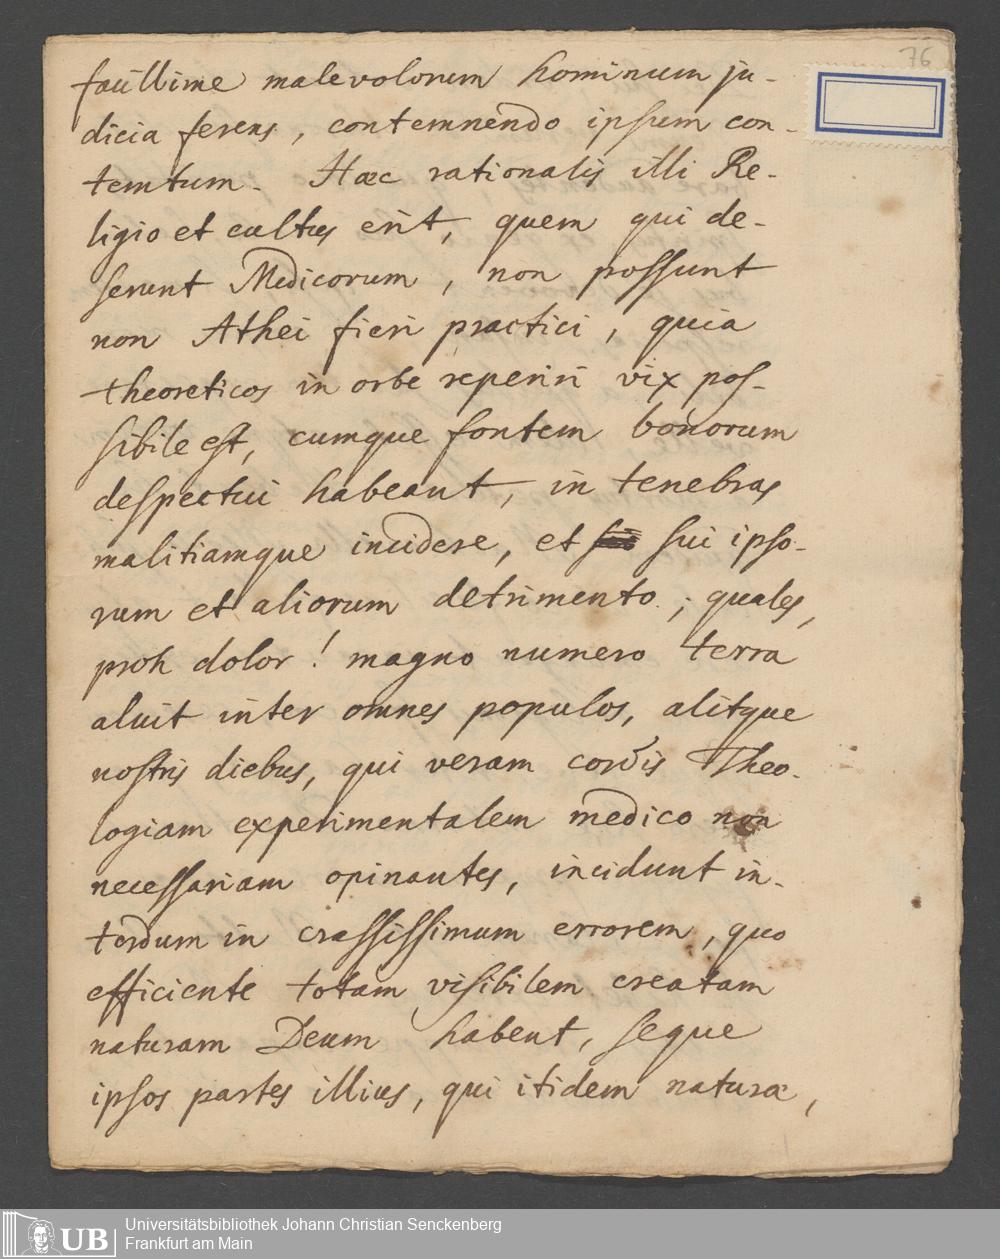 76
facillime malevolorum hominum ju-
dicia ferens, contemnendo ipsum con-
temtum. Haec rationalis illi Re-
ligio et cultus erit, quem qui de-
serunt Medicorum, non possunt
non Athei fieri practici, quia
theoreticos in orbe reperiri vix pos-
sibile est, cumque fontem bonorum
despectui habeant, in tenebras
malitiamque incidere, et sui ipso-
rum et aliorum detrimento; quales,
proh dolor! magno numero terra
aluit inter omnes populos, alitque
nostris diebus, qui veram cordis Theo-
logiam experimentalem medico non
necessariam opinantes, incidunt in-
terdum in crassissimum errorem, quo
efficiente totam visibilem creatam
naturam Deum habent, seque
ipsos partes illius, qui itidem naturae,
UB Universitätsbibliothek Johann Christian Senckenberg
Frankfurt am Main